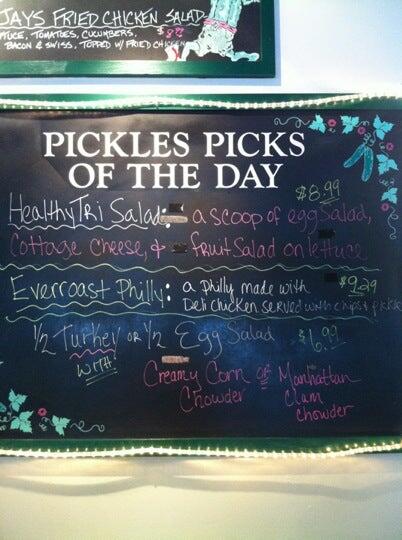 JAYS FRIED CHICKEN SALAD
TUCE, TOMATOES, CUCUMBERS,
BACON & SWISS, TOPPED W/ FRIED CHICKEN
PICKLES PICKS
OF THE DAY
$8.99
Healthy Tri Salad: a scoop of egg Salad,
Cottage Cheese, & fruit Salad on lettuce
Everroast Philly: a philly made with $9.29
Deli chicken served with chips & pickle
1/2 Turkey or 1/2 Egg Salad $6.99
with
Creamy Corn or Manhattan
Chowder Clam
chowder